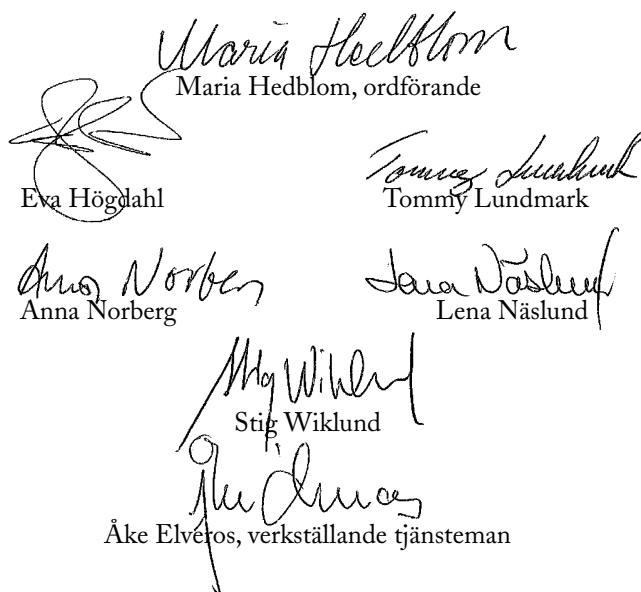 Maria Hedblom
Maria Hedblom, ordförande
Eva Högdahl
Tommy Lundmark
Tommy Lundmark
Anna Norberg
Anna Norberg
Lena Näslund
Lena Näslund
Stig Wiklund
Stig Wiklund
Åke Elveros, verkställande tjänsteman